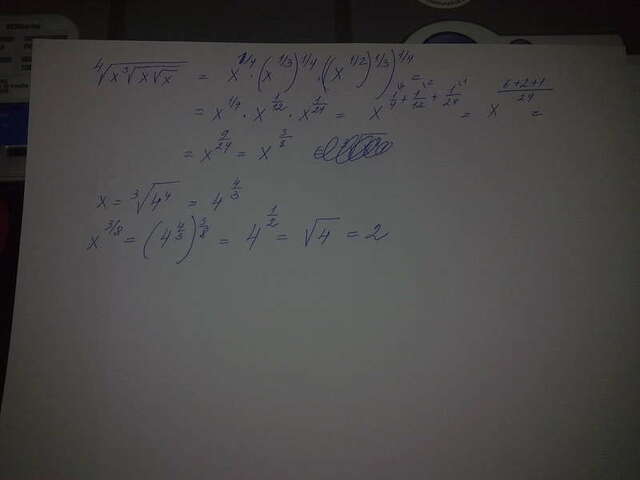 ⁴√(x³√(x√x)) = x^1/4 · (x^1/3)^1/4 · ((x^1/2)^1/3)^1/4 =
= x^1/4 · x^1/12 · x^1/24 = x^(1/4 + 1/12 + 1/24) = x^((6+2+1)/24) =
= x^9/24 = x^3/8
x = ³√4⁴ = 4^4/3
x^3/8 = (4^4/3)^3/8 = 4^1/2 = √4 = 2